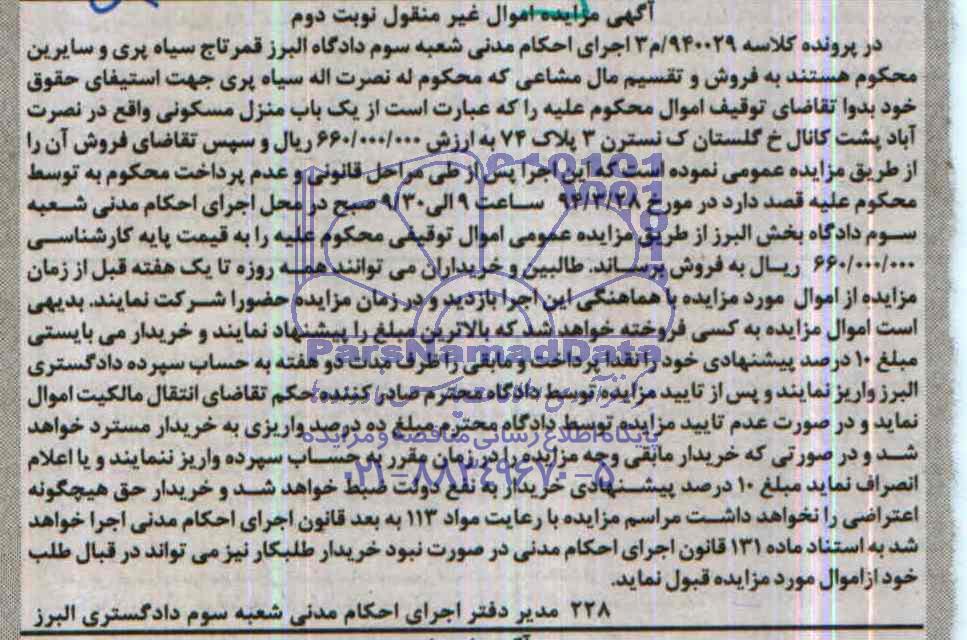 آگهی مزایده اموال غیر منقول نوبت دوم
در پرونده کلاسه ۹۴۰۰۲۹/م۳ اجرای احکام مدنی شعبه سوم دادگاه البرز قمرتاج سیاه پری و سایرین
محکوم هستند به فروش و تقسیم مال مشاعی که محکوم له نصرت اله سیاه پری جهت استیفای حقوق
خود بدوا تقاضای توقیف اموال محکوم علیه را که عبارت است از یک باب منزل مسکونی واقع در نصرت
آباد پشت کانال خ گلستان ک نسترن ۳ پلاک ۷۴ به ارزش ۶۶۰/۰۰۰/۰۰۰ ریال و سپس تقاضای فروش آن را
از طریق مزایده عمومی نموده است که این اجرا پس از طی مراحل قانونی و عدم پرداخت محکوم به توسط
محکوم علیه قصد دارد در مورخ ۹۴/۳/۲۸ ساعت ۹ الی ۹/۳۰ صبح در محل اجرای احکام مدنی شعبه
سوم دادگاه بخش البرز از طریق مزایده عمومی اموال توقیفی محکوم علیه را به قیمت پایه کارشناسی
۶۶۰/۰۰۰/۰۰۰ ریال به فروش برساند. طالبین و خریداران می توانند همه روزه تا یک هفته قبل از زمان
مزایده از اموال مورد مزایده با هماهنگی این اجرا بازدید و در زمان مزایده حضورا شرکت نمایند. بدیهی
است اموال مزایده به کسی فروخته خواهد شد که بالاترین مبلغ را پیشنهاد نمایند و خریدار می بایستی
مبلغ ۱۰ درصد پیشنهادی خود را نقدا پرداخت و مابقی را ظرف مدت دو هفته به حساب سپرده دادگستری
ParsNamadData
البرز واریز نمایند و پس از تایید مزایده توسط دادگاه محترم صادر کننده حکم تقاضای انتقال مالکیت اموال
نماید و در صورت عدم تایید مزایده توسط دادگاه محترم مبلغ ده درصد واریزی به خریدار مسترد خواهد
پایگاه اطلاع رسانی مناقصه و مزایده
شد و در صورتی که خریدار مابقی وجه مزایده را در زمان مقرر به حساب سپرده واریز ننمایند و یا اعلام
۰۲۱-۸۸۳۴۹۶۷۰-۵
انصراف نماید مبلغ ۱۰ درصد پیشنهادی خریدار به نفع دولت ضبط خواهد شد و خریدار حق هیچگونه
اعتراضی را نخواهد داشت مراسم مزایده با رعایت مواد ۱۱۳ به بعد قانون اجرای احکام مدنی اجرا خواهد
شد به استناد ماده ۱۳۱ قانون اجرای احکام مدنی در صورت نبود خریدار طلبکار نیز می تواند در قبال طلب
خود از اموال مورد مزایده قبول نماید.
۲۲۸ مدیر دفتر اجرای احکام مدنی شعبه سوم دادگستری البرز